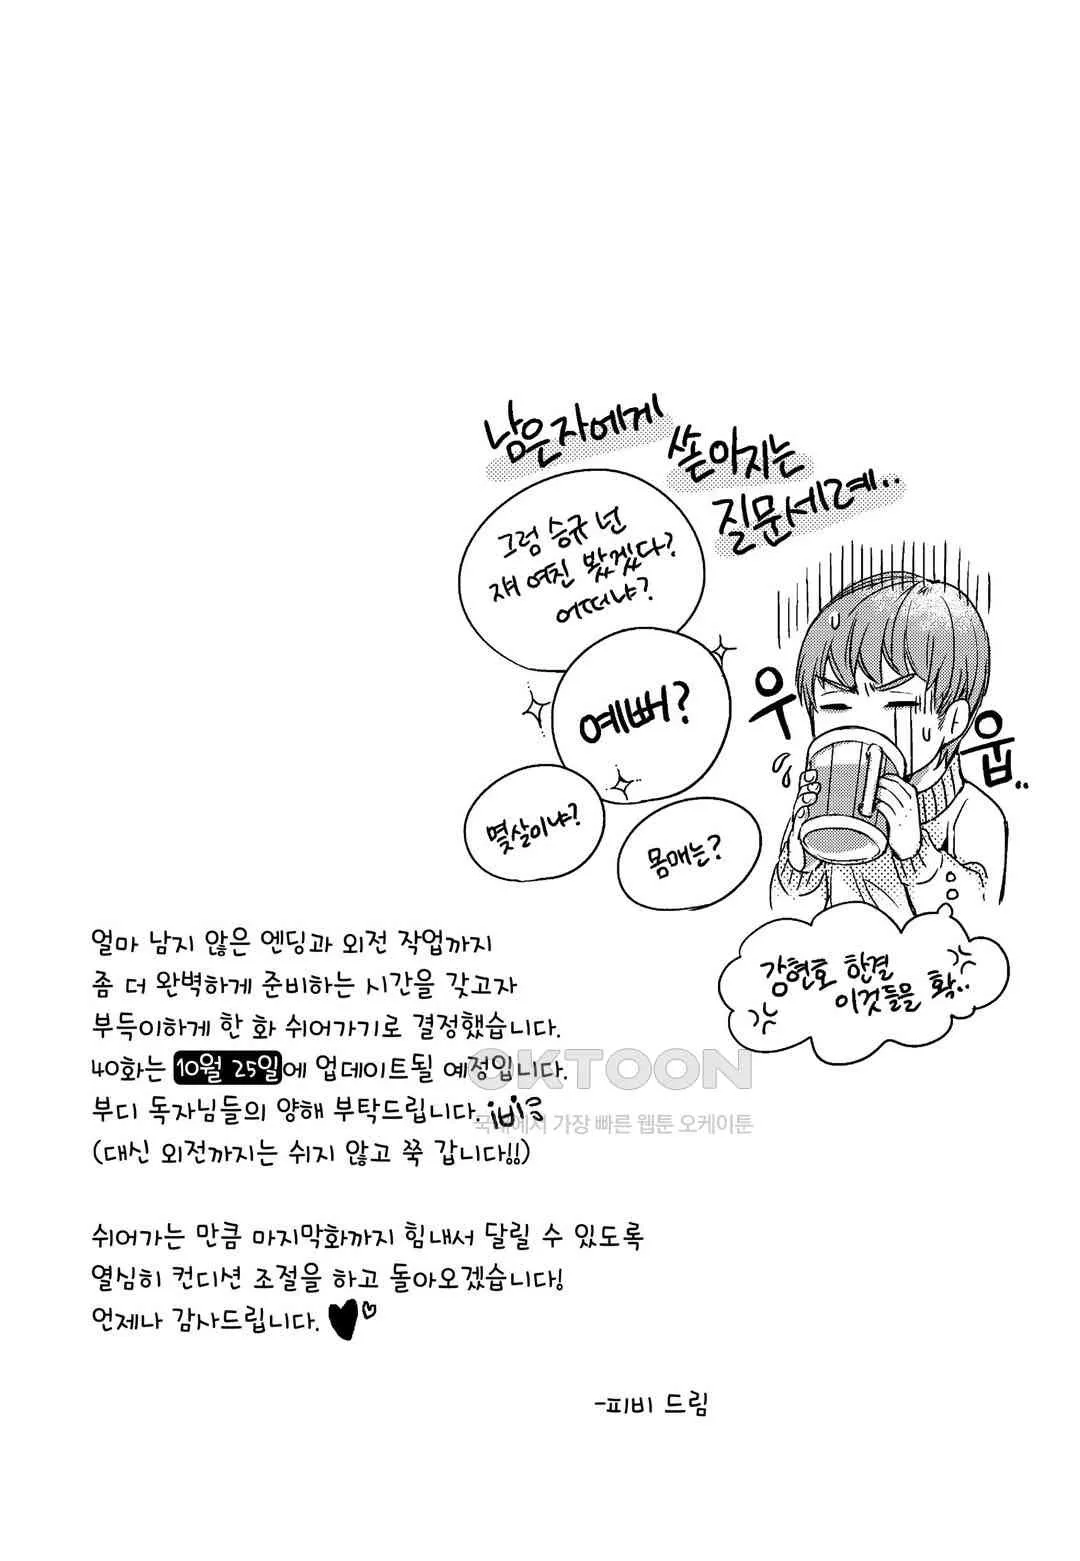 남은자에게
쏟아지는
질문세례..
그럼 승규 넌
쟤 여친 봤겠다?
어떠냐?
예뻐?
몇살이냐?
몸매는?
우
웁..
강현호 한결
이것들을 확..
얼마 남지 않은 엔딩과 외전 작업까지
좀 더 완벽하게 준비하는 시간을 갖고자
부득이하게 한 화 쉬어가기로 결정했습니다.
40화는 10월 25일에 업데이트될 예정입니다.
부디 독자님들의 양해 부탁드립니다.
(대신 외전까지는 쉬지 않고 쭉 갑니다!!)
OKTOON
국내에서 가장 빠른 웹툰 오케이툰
쉬어가는 만큼 마지막화까지 힘내서 달릴 수 있도록
열심히 컨디션 조절을 하고 돌아오겠습니다!
언제나 감사드립니다.
-피비 드림